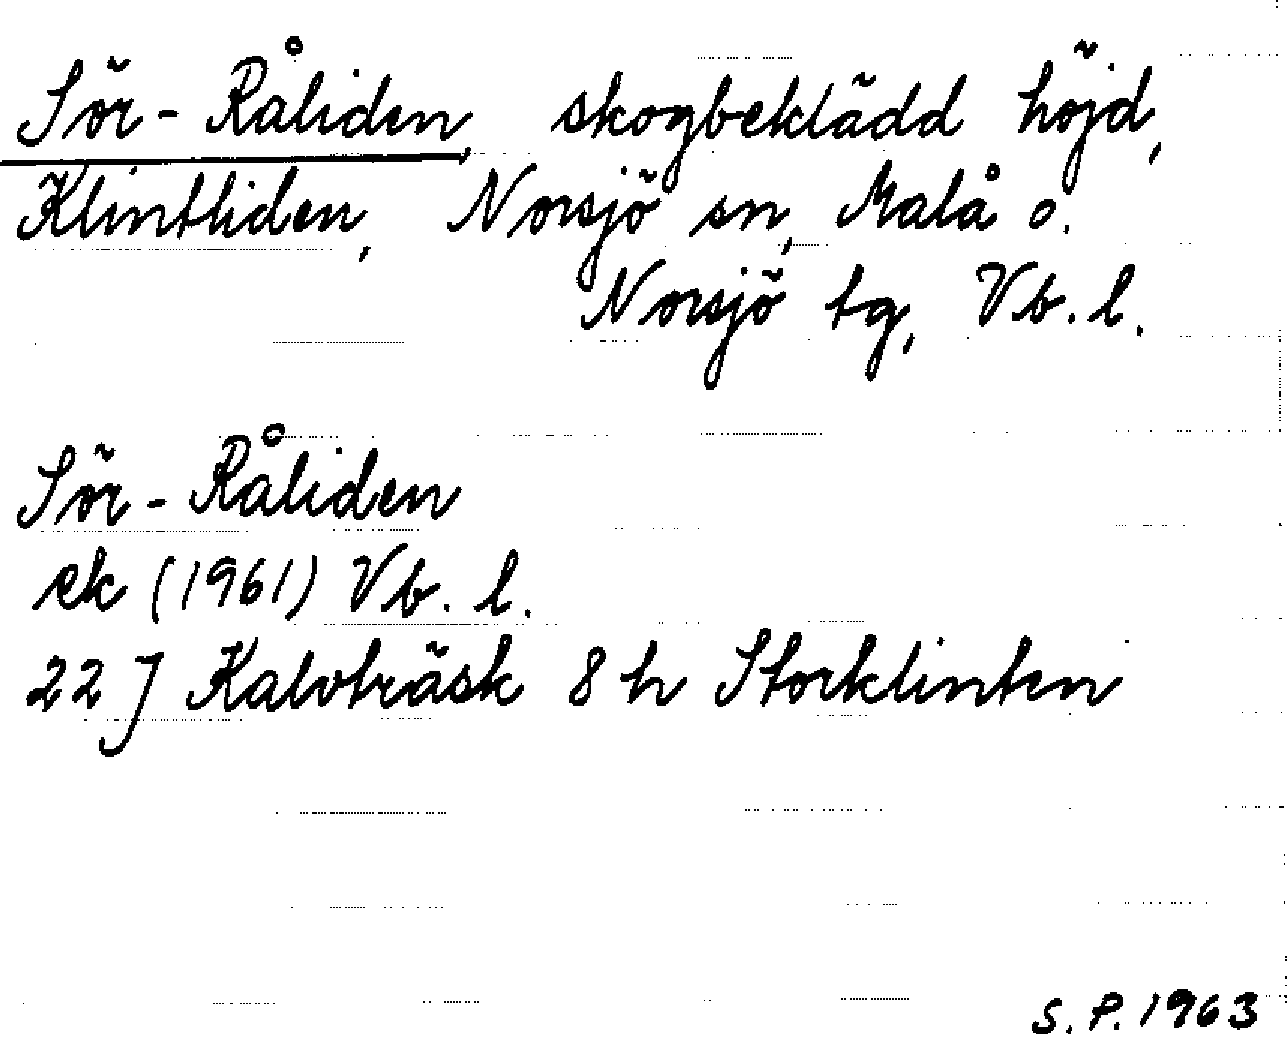 Sör-Råliden, skogbeklädd höjd,
Klintliden, Norsjö sn, Malå o.
Norsjö tg, Vb. l.
Sör-Råliden
ek (1961) Vb. l.
22 J Kalvträsk 8 h Storklinten
S. P. 1963